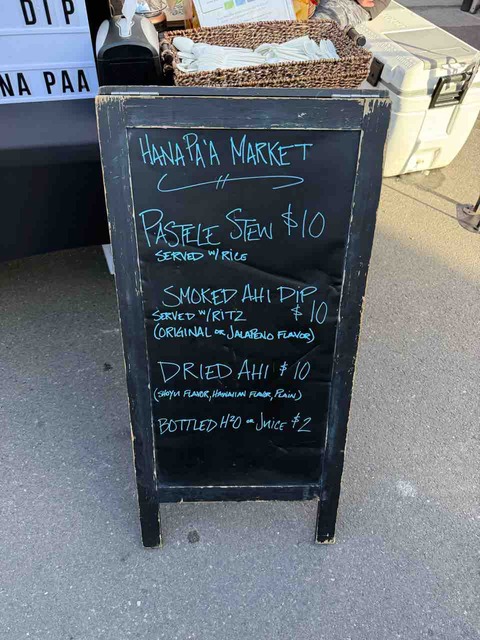 DIP
NA PAA
HANAPA'A MARKET
PASTELE STEW $10
SERVED W/RICE
SMOKED AHI DIP
SERVED W/RITZ $10
(ORIGINAL OR JALAPENO FLAVOR)
DRIED AHI $10
(SHOYU FLAVOR, HAWAIIAN FLAVOR, PLAIN)
BOTTLED H2O OR JUICE $2